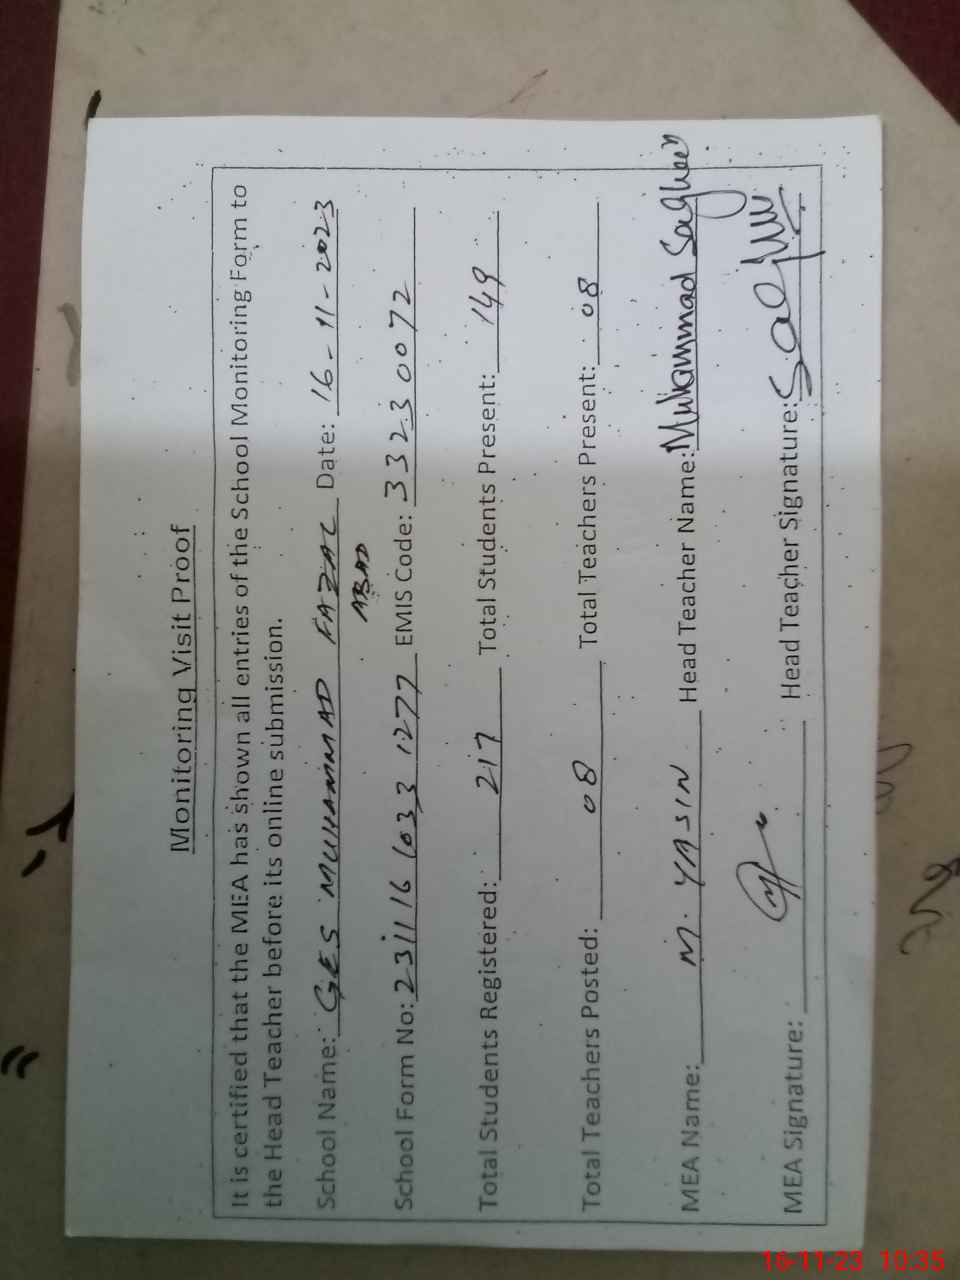 Monitoring Visit Proof
It is certified that the MEA has shown all entries of the School Monitoring Form to
the Head Teacher before its online submission.
School Name: GES MUHAMMAD FAZAL ABAD Date: 16-11-2023
School Form No: 231116 1033 1277 EMIS Code: 33230072
Total Students Registered: 217 Total Students Present: 149
Total Teachers Posted: 08 Total Teachers Present: 08
MEA Name: M. YASIN Head Teacher Name: Muhammad Sagheer
MEA Signature: Head Teacher Signature:
16-11-23 10:35